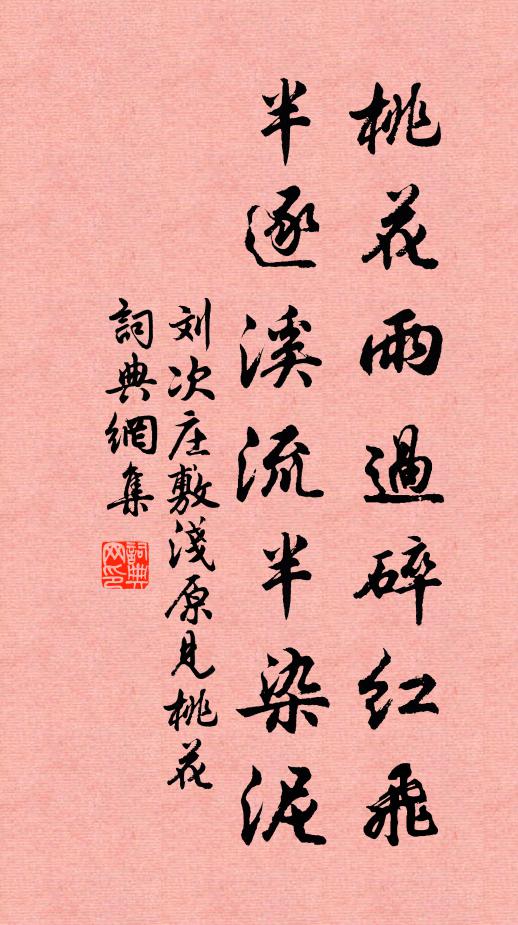 桃花雨過碎紅飛
半逐溪流半染泥
刘次庄敷淺原見桃花
詞典網集
詞典网印